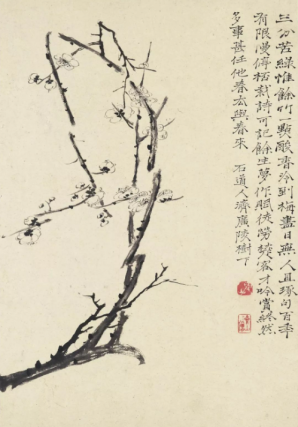 三分苦綠惟餘竹一點酸香冷到梅盡日無人且琢句百年
有限漫停栖栽詩可記餘生夢作閣徒勞擾客才吟賞終然
多事甚任他春去與春來 石道人濟廣陵樹下